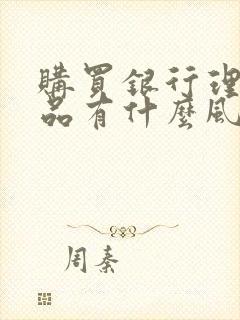 購買銀行理
品有什麼風
周秦